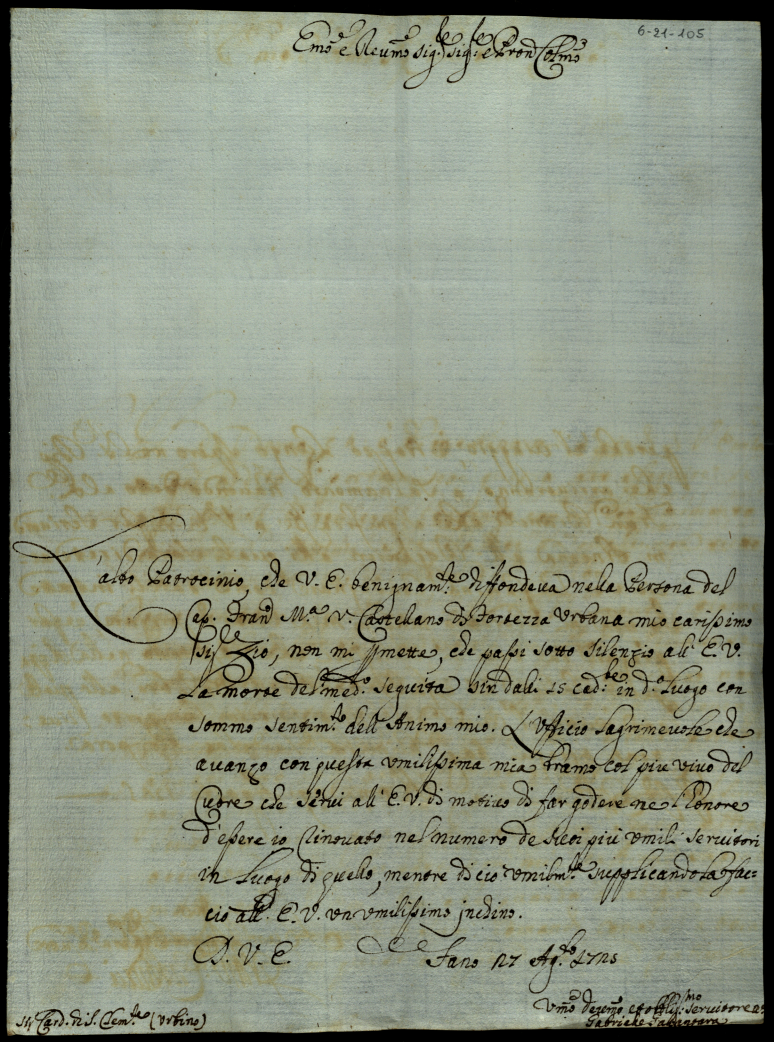 6-21-105
Emo e Reumo Sig.re Sig.re e Pron Colmo
L'alto Patrocinio, che V. E. benignam.te diffondeva nella Persona del
Cap. Fran M.a V. Castellano di Fortezza Urbana mio carissimo
Sig. Zio, non mi pmette, che passi sotto silenzio all' E. V.
la morte del med.o seguita sin dalli 15 cad.te in d.o luogo con
sommo sentim.to dell'Animo mio. L'Ufficio lagrimevole che
avanzo con questa umilissima mia bramo col più vivo del
Cuore che servi all' E. V. di motivo di far godere ne l'honore
d'essere io rinovato nel numero de suoi più umili servitori
in luogo di quello, mentre di ciò umilm.te supplicandola fac=
cio all' E. V. un umilissimo inchino.
D. V. E. Fano 27 Ag.to 1725
Sig. Card. di S. Clem.te (Urbino)
Umo Devmo et obblig.mo servitore
Gabriele